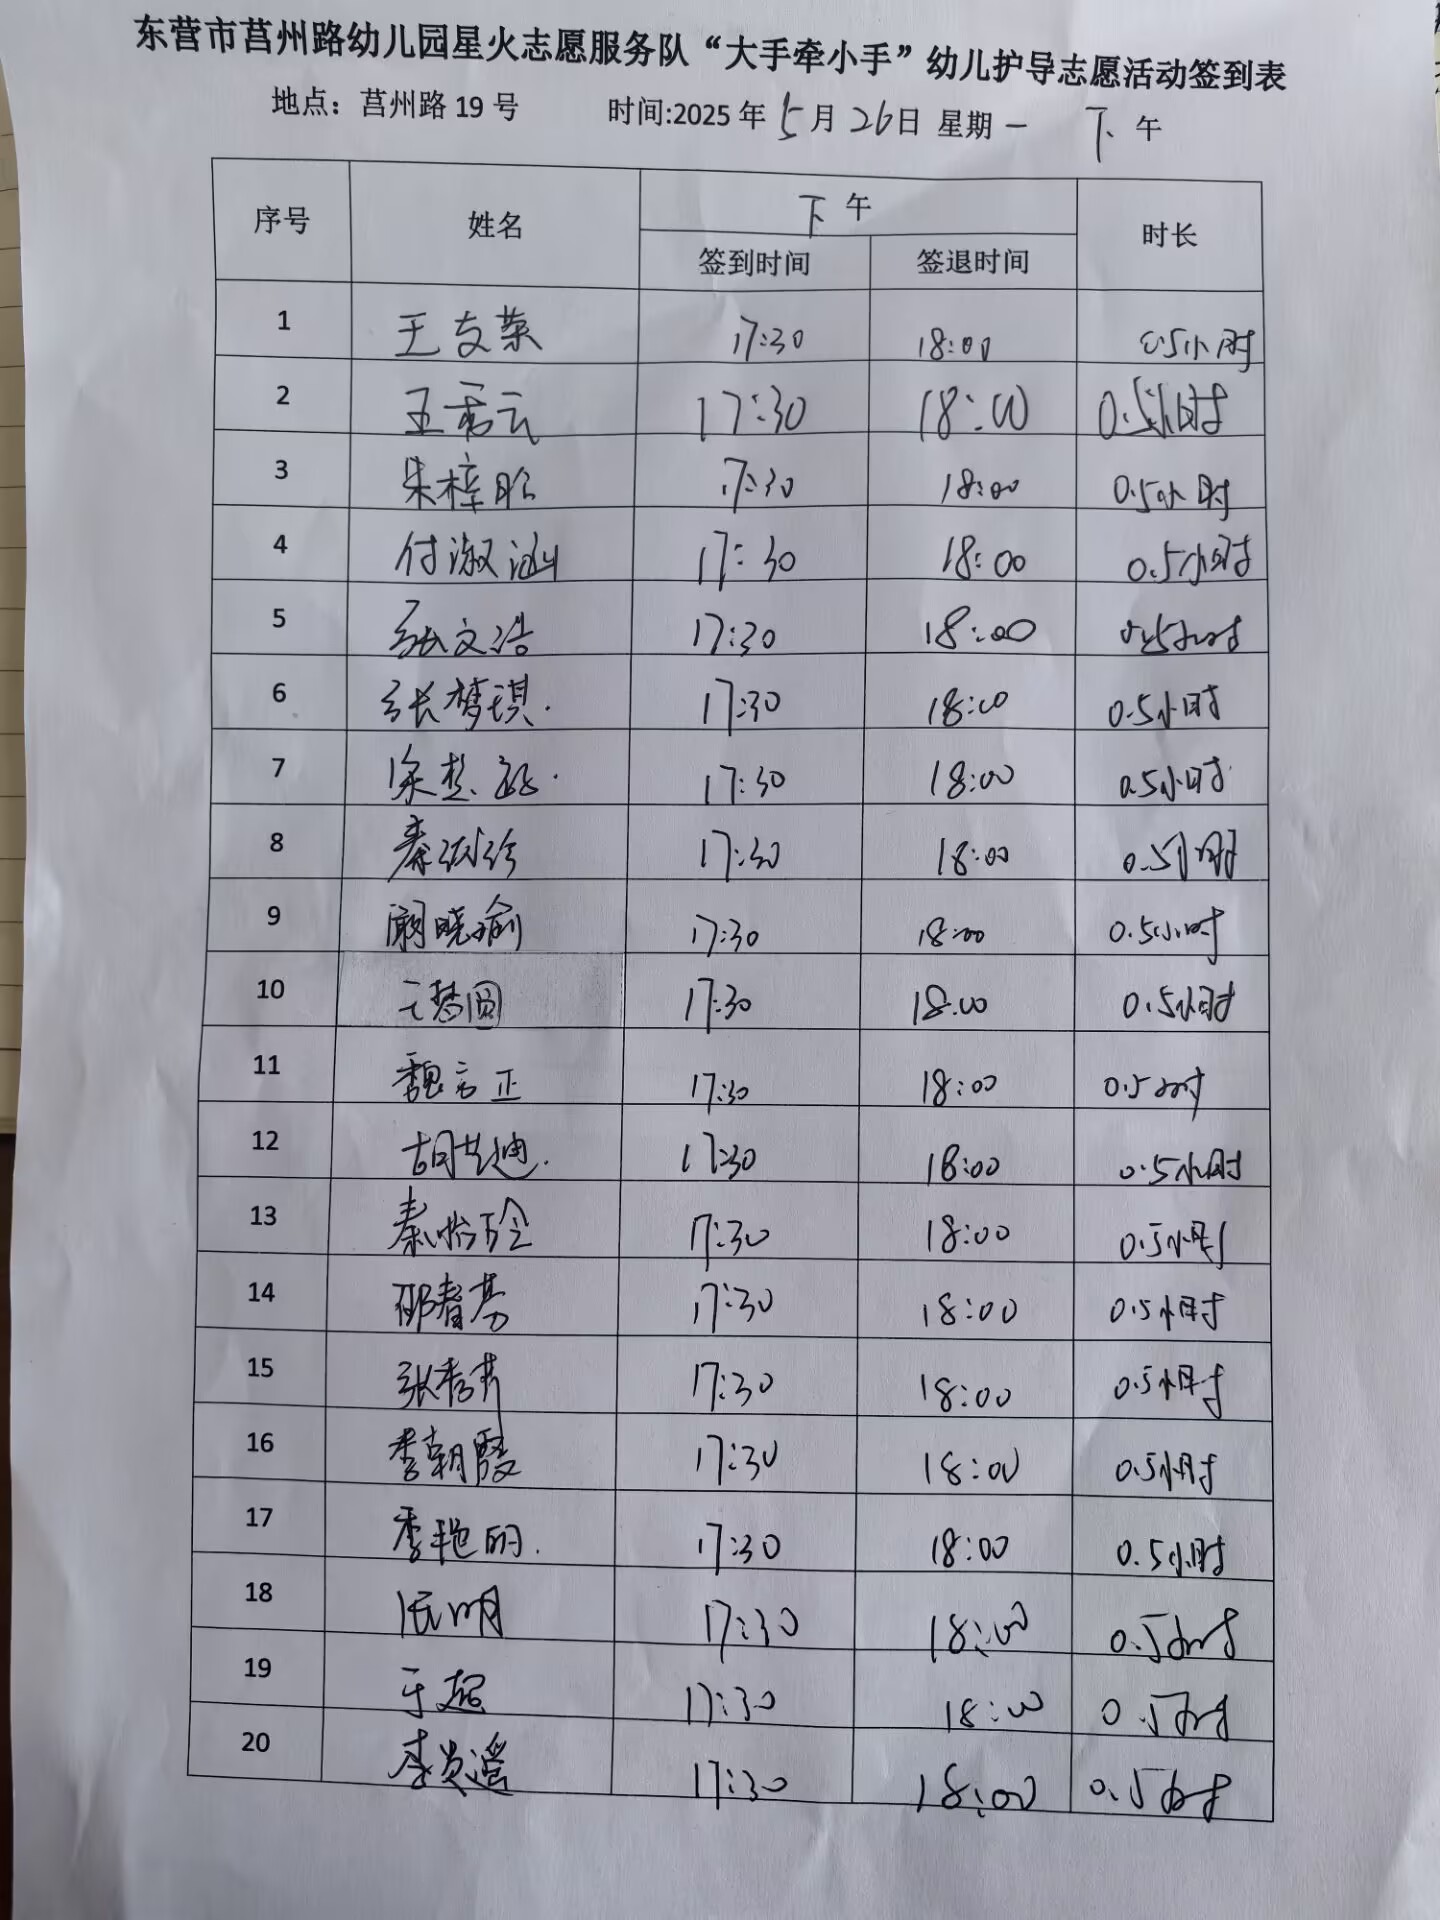 东营市莒州路幼儿园星火志愿服务队“大手牵小手”幼儿护导志愿活动签到表
地点：莒州路 19 号 时间:2025 年 5 月 26 日 星期 一 下 午
序号 姓名 下 午 时长
签到时间 签退时间
1 王友荣 17:30 18:00 0.5小时
2 王秀云 17:30 18:00 0.5小时
3 朱梓昭 17:30 18:00 0.5小时
4 付淑涵 17:30 18:00 0.5小时
5 张文浩 17:30 18:00 0.5小时
6 张梦琪. 17:30 18:00 0.5小时
7 17:30 18:00 0.5小时
8 17:30 18:00 0.5小时
9 阚晓瑜 17:30 18:00 0.5小时
10 王梦圆 17:30 18:00 0.5小时
11 魏言正 17:30 18:00 0.5小时
12 胡艺迪. 17:30 18:00 0.5小时
13 17:30 18:00 0.5小时
14 邵春芳 17:30 18:00 0.5小时
15 张秀芹 17:30 18:00 0.5小时
16 李朝霞 17:30 18:00 0.5小时
17 李艳明. 17:30 18:00 0.5小时
18 17:30 18:00 0.5小时
19 于超 17:30 18:00 0.5小时
20 17:30 18:00 0.5小时